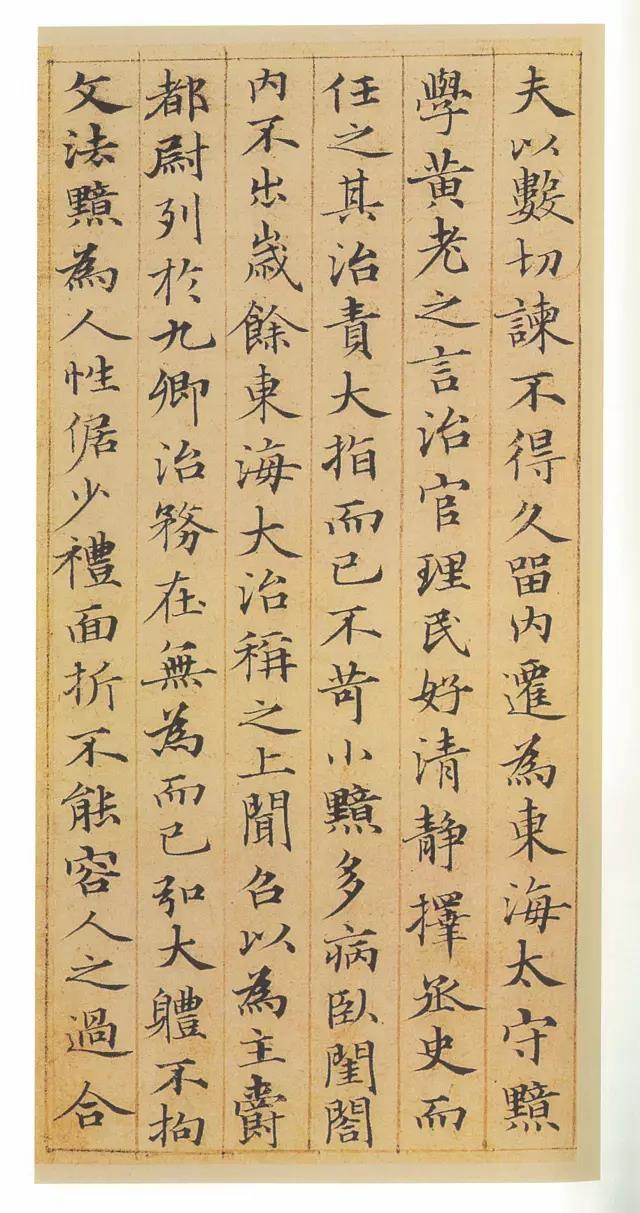 夫以數切諫不得久留内遷為東海太守黯
學黄老之言治官理民好清静擇丞史而
任之其治責大指而已不苛小黯多病臥閨閤
内不出歳餘東海大治稱之上聞召以為主爵
都尉列於九卿治務在無為而已弘大軆不拘
文法黯為人性倨少禮面折不能容人之過合